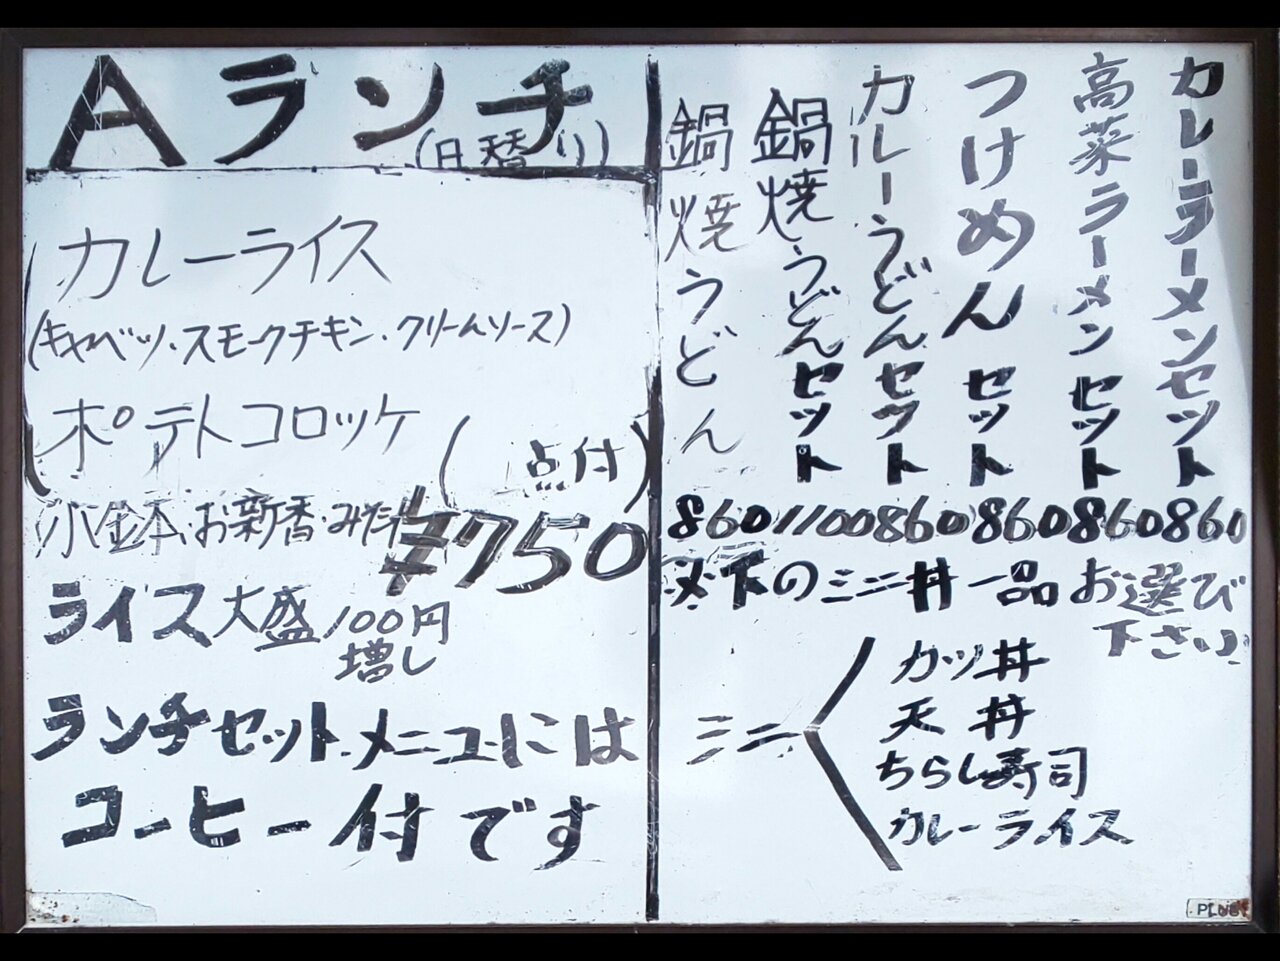 Aランチ
(日替り)
カレーライス
(キャベツ・スモークチキン・クリームソース)
ポテトコロッケ
(点付)
小鉢・お新香・みそ汁
¥750
ライス大盛100円
増し
ランチセットメニューには
コーヒー付です
カレーラーメンセット
860
高菜ラーメンセット
860
つけめんセット
860
カレーうどんセット
860
鍋焼うどんセット
1100
鍋焼うどん
860
以下のミニ丼一品お選び
下さい
ミニ
カツ丼
天丼
ちらし寿司
カレーライス
PLUS